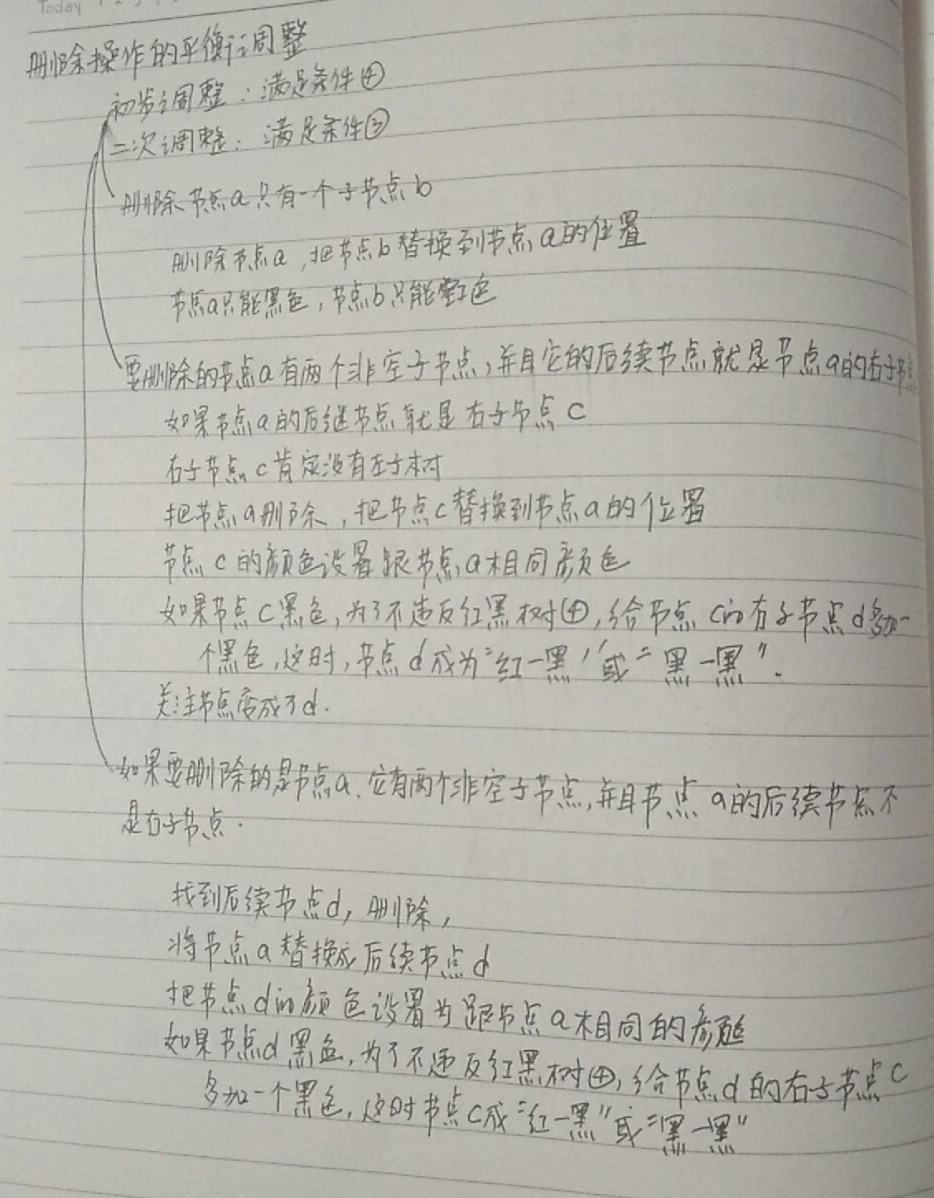 Today
删除操作的平衡调整
初步调整：满足条件④
二次调整：满足条件③
删除节点a只有一个子节点b
删除节点a，把节点b替换到节点a的位置
节点a只能黑色，节点b只能红色
要删除的节点a有两个非空子节点，并且它的后续节点就是节点a的右子节点
如果节点a的后继节点就是右子节点c
右子节点c肯定没有左子树
把节点a删除，把节点c替换到节点a的位置
节点c的颜色设置跟节点a相同颜色
如果节点c黑色，为了不违反红黑树④，给节点c的右子节点d多加一
个黑色，这时，节点d成为“红一黑”或“黑一黑”.
关注节点变成了d.
如果要删除的是节点a、它有两个非空子节点，并且节点a的后续节点不
是右子节点.
找到后续节点d，删除，
将节点a替换成后续节点d
把节点d的颜色设置为跟节点a相同的颜色
如果节点d黑色，为了不违反红黑树④，给节点d的右子节点c
多加一个黑色，这时节点c成“红一黑”或“黑一黑”